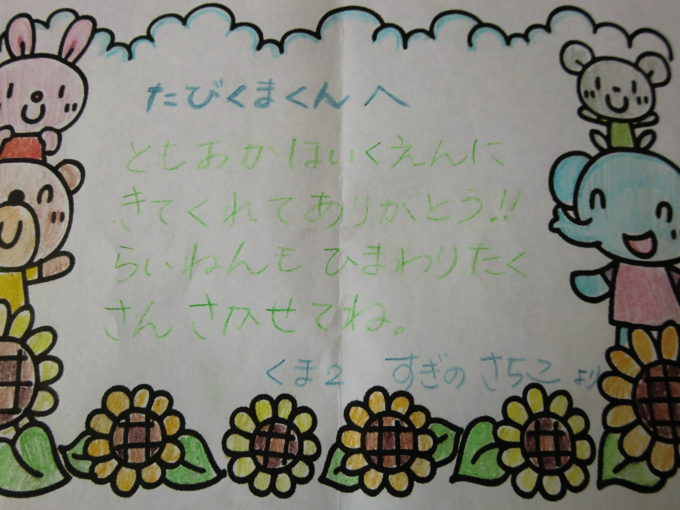 たびくまくんへ
ともおかほいくえんに
きてくれてありがとう!!
らいねんもひまわりたく
さんさかせてね。
くま2 すぎの さちこ より